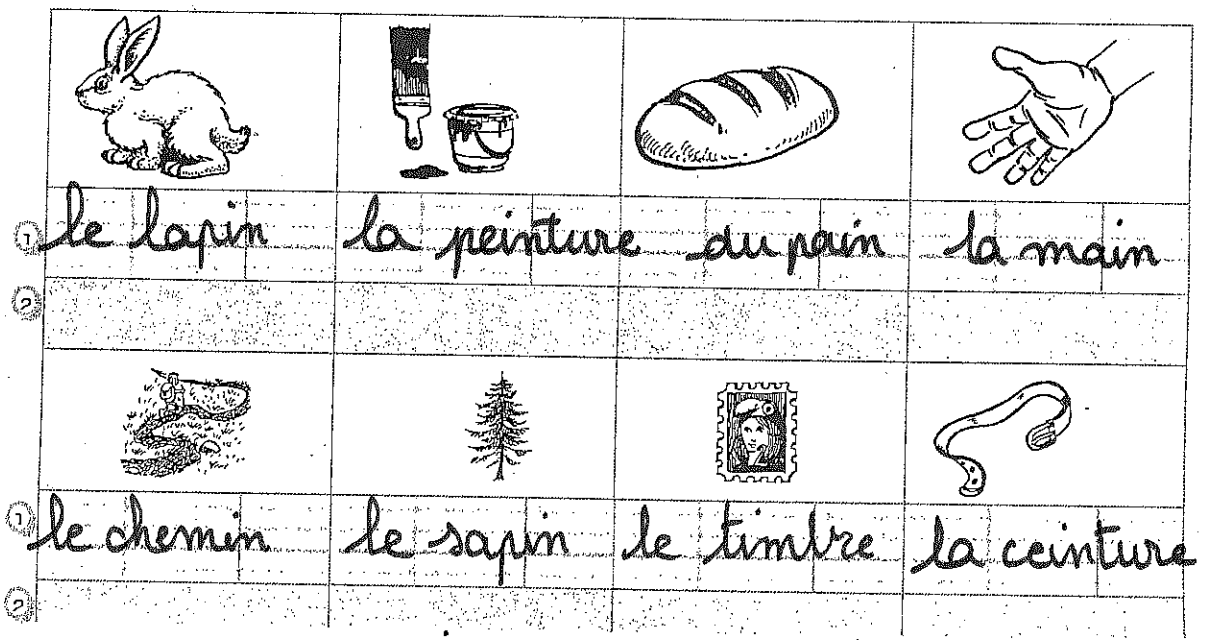 ① le lapin la peinture du pain la main
②
① le chemin le sapin le timbre la ceinture
②